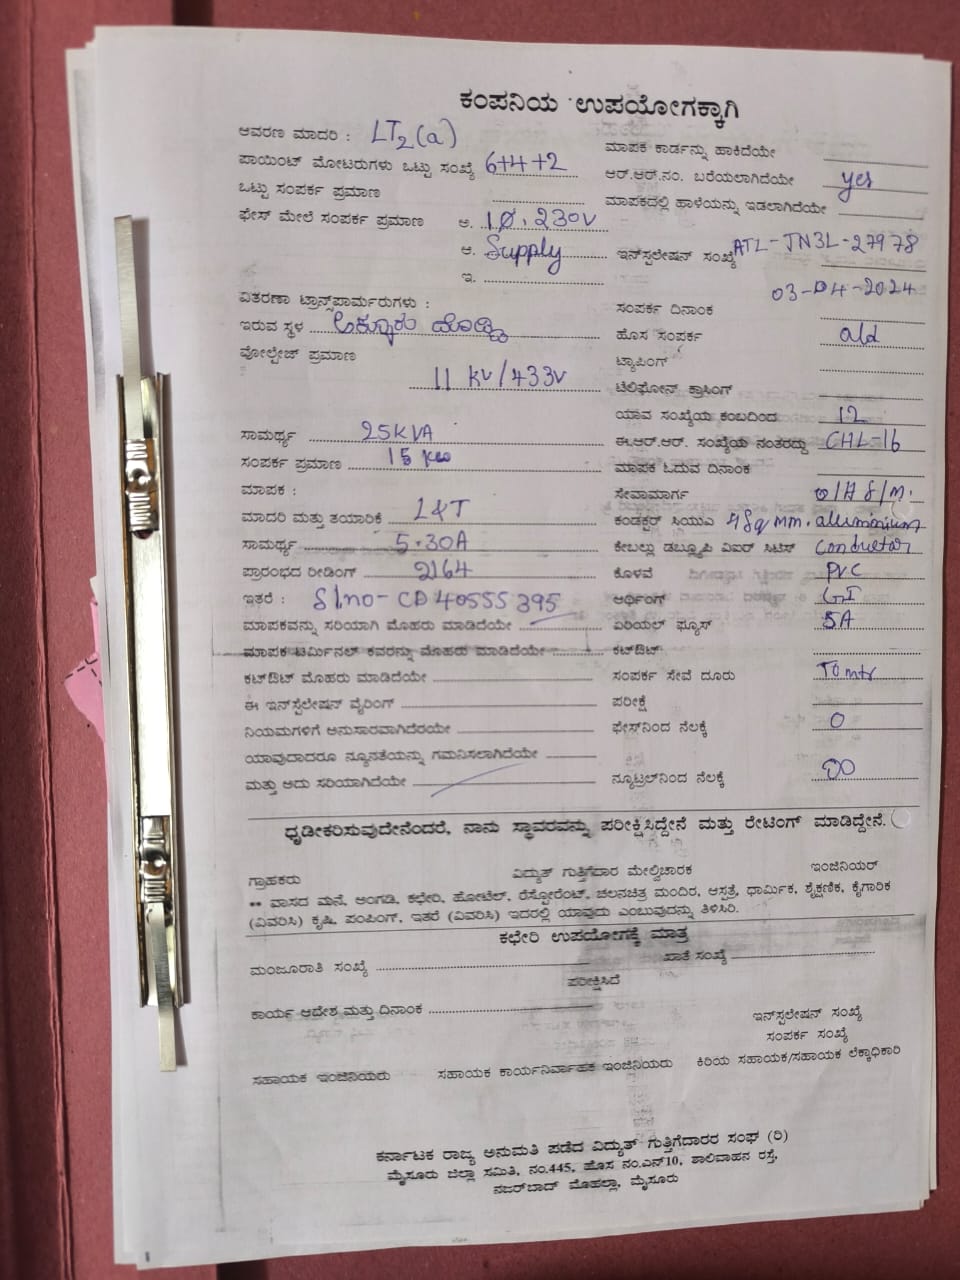 ಕಂಪನಿಯ ಉಪಯೋಗಕ್ಕಾಗಿ
ಆವರಣ ಮಾದರಿ : LT2(a)
ಪಾಯಿಂಟ್ ಮೋಟರುಗಳು ಒಟ್ಟು ಸಂಖ್ಯೆ 6+4+2
ಒಟ್ಟು ಸಂಪರ್ಕ ಪ್ರಮಾಣ
ಫೇಸ್ ಮೇಲೆ ಸಂಪರ್ಕ ಪ್ರಮಾಣ ಅ. 1Ø, 230V
ಆ. Supply
ಇ.
ವಿತರಣಾ ಟ್ರಾನ್ಸ್‌ಫಾರ್ಮರುಗಳು :
ಇರುವ ಸ್ಥಳ
ವೋಲ್ಟೇಜ್ ಪ್ರಮಾಣ
11 KV/433V
ಸಾಮರ್ಥ್ಯ 25KVA
ಸಂಪರ್ಕ ಪ್ರಮಾಣ 15 KW
ಮಾಪಕ :
ಮಾದರಿ ಮತ್ತು ತಯಾರಿಕೆ L&T
ಸಾಮರ್ಥ್ಯ 5-30A
ಪ್ರಾರಂಭದ ರೀಡಿಂಗ್ 2164
ಇತರೆ : Slno- CD 40555395
ಮಾಪಕವನ್ನು ಸರಿಯಾಗಿ ಮೊಹರು ಮಾಡಿದೆಯೇ
ಮಾಪಕ ಟರ್ಮಿನಲ್ ಕವರನ್ನು ಮೊಹರು ಮಾಡಿದೆಯೇ
ಕಟ್‌ಔಟ್ ಮೊಹರು ಮಾಡಿದೆಯೇ
ಈ ಇನ್‌ಸ್ಟಲೇಷನ್ ವೈರಿಂಗ್
ನಿಯಮಗಳಿಗೆ ಅನುಸಾರವಾಗಿದೆರಯೇ
ಯಾವುದಾದರೂ ನ್ಯೂನತೆಯನ್ನು ಗಮನಿಸಲಾಗಿದೆಯೇ
ಮತ್ತು ಅದು ಸರಿಯಾಗಿದೆಯೇ
ಮಾಪಕ ಕಾರ್ಡನ್ನು ಹಾಕಿದೆಯೇ
ಆರ್.ಆರ್.ನಂ. ಬರೆಯಲಾಗಿದೆಯೇ yes
ಮಾಪಕದಲ್ಲಿ ಹಾಳೆಯನ್ನು ಇಡಲಾಗಿದೆಯೇ
ಇನ್‌ಸ್ಟಲೇಷನ್ ಸಂಖ್ಯೆ ATL-JN3L-27978
03-04-2024
ಸಂಪರ್ಕ ದಿನಾಂಕ
ಹೊಸ ಸಂಪರ್ಕ old
ಟ್ಯಾಪಿಂಗ್
ಟೆಲಿಫೋನ್ ಕ್ರಾಸಿಂಗ್
ಯಾವ ಸಂಖ್ಯೆಯ ಕಂಬದಿಂದ 12
ಈ.ಆರ್.ಆರ್. ಸಂಖ್ಯೆಯ ನಂತರದ್ದು CHL-16
ಮಾಪಕ ಓದುವ ದಿನಾಂಕ
ಸೇವಾಮಾರ್ಗ O/H S/M.
ಕಂಡಕ್ಟರ್ ಸಿಯುಎ 4Sq mm. aluminium
ಕೇಬಲ್ಲು ಡಬ್ಲ್ಯೂಪಿ ವಿಐರ್ ಸಿಟಿಸ್ Conductor
ಕೊಳವೆ PVC
ಅರ್ಥಿಂಗ್ GI
ಏರಿಯಲ್ ಫ್ಯೂಸ್ 5A
ಕಟ್‌ಔಟ್
ಸಂಪರ್ಕ ಸೇವೆ ದೂರು 10 mtr
ಪರೀಕ್ಷೆ
ಫೇಸ್‌ನಿಂದ ನೆಲಕ್ಕೆ 0
ನ್ಯೂಟ್ರಲ್‌ನಿಂದ ನೆಲಕ್ಕೆ
ಧೃಡೀಕರಿಸುವುದೇನೆಂದರೆ, ನಾನು ಸ್ಥಾವರವನ್ನು ಪರೀಕ್ಷಿಸಿದ್ದೇನೆ ಮತ್ತು ರೇಟಿಂಗ್ ಮಾಡಿದ್ದೇನೆ.
ಗ್ರಾಹಕರು ವಿದ್ಯುತ್ ಗುತ್ತಿಗೆದಾರ ಮೇಲ್ವಿಚಾರಕ ಇಂಜಿನಿಯರ್
** ವಾಸದ ಮನೆ, ಅಂಗಡಿ, ಕಛೇರಿ, ಹೋಟೆಲ್, ರೆಸ್ಟೋರೆಂಟ್, ಚಲನಚಿತ್ರ ಮಂದಿರ, ಆಸ್ಪತ್ರೆ, ಧಾರ್ಮಿಕ, ಶೈಕ್ಷಣಿಕ, ಕೈಗಾರಿಕ
(ವಿವರಿಸಿ) ಕೃಷಿ, ಪಂಪಿಂಗ್, ಇತರೆ (ವಿವರಿಸಿ) ಇದರಲ್ಲಿ ಯಾವುದು ಎಂಬುವುದನ್ನು ತಿಳಿಸಿರಿ.
ಕಛೇರಿ ಉಪಯೋಗಕ್ಕೆ ಮಾತ್ರ
ಮಂಜೂರಾತಿ ಸಂಖ್ಯೆ ಖಾತೆ ಸಂಖ್ಯೆ
ಪರೀಕ್ಷಿಸಿದೆ
ಕಾರ್ಯ ಆದೇಶ ಮತ್ತು ದಿನಾಂಕ ಇನ್‌ಸ್ಟಲೇಷನ್ ಸಂಖ್ಯೆ
ಸಂಪರ್ಕ ಸಂಖ್ಯೆ
ಸಹಾಯಕ ಇಂಜಿನಿಯರು ಸಹಾಯಕ ಕಾರ್ಯನಿರ್ವಾಹಕ ಇಂಜಿನಿಯರು ಕಿರಿಯ ಸಹಾಯಕ/ಸಹಾಯಕ ಲೆಕ್ಕಾಧಿಕಾರಿ
ಕರ್ನಾಟಕ ರಾಜ್ಯ ಅನುಮತಿ ಪಡೆದ ವಿದ್ಯುತ್ ಗುತ್ತಿಗೆದಾರರ ಸಂಘ (ರಿ)
ಮೈಸೂರು ಜಿಲ್ಲಾ ಸಮಿತಿ, ನಂ.445, ಹೊಸ ನಂ.ಎನ್10, ಶಾಲಿವಾಹನ ರಸ್ತೆ,
ನಜರ್‌ಬಾದ್ ಮೊಹಲ್ಲಾ, ಮೈಸೂರು